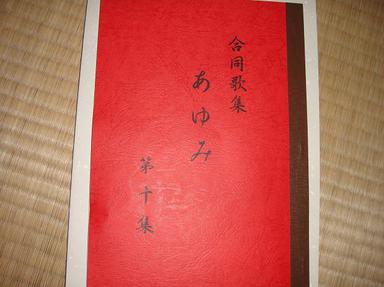 合同歌集
あゆみ
第十集